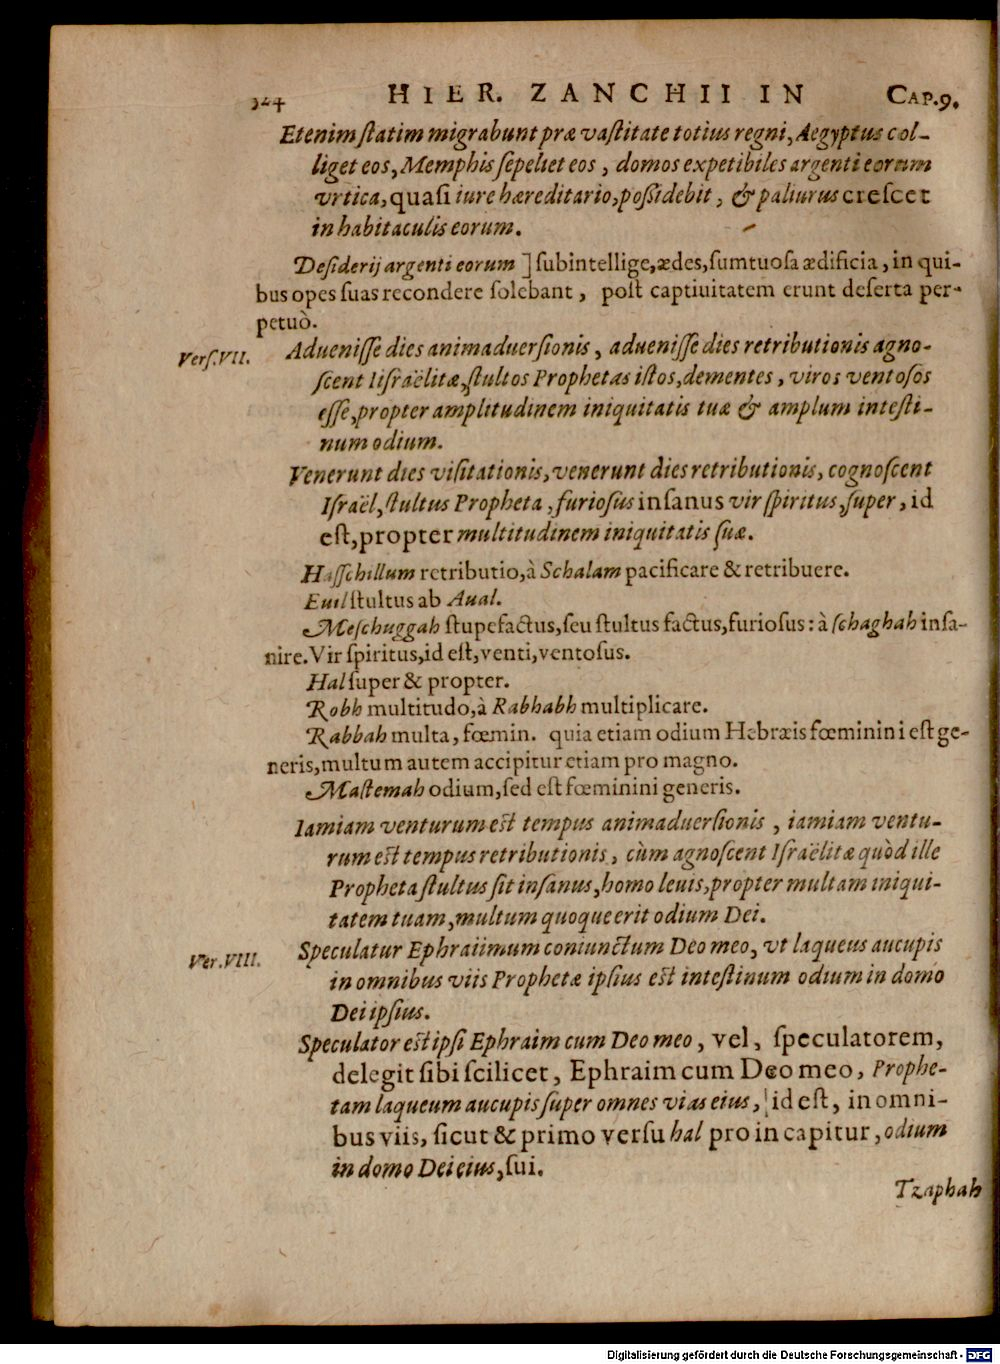 324 HIER. ZANCHII IN CAP.9.
Etenim ſtatim migrabunt præ vaſtitate totius regni, Aegyptus col-
liget eos, Memphis ſepeliet eos, domos expetibiles argenti eorum
vrtica, quaſi iure hæreditario, poſsidebit, & paliurus creſcet
in habitaculis eorum.
Deſiderij argenti eorum ] ſubintellige, ædes, ſumtuoſa ædificia, in qui-
bus opes ſuas recondere ſolebant, poſt captiuitatem erunt deſerta per-
petuò.
Verſ.VII. Adueniſſe dies animaduerſionis, adueniſſe dies retributionis agno-
ſcent Iiſraëlitæ, ſtultos Prophetas iſtos, dementes, viros ventoſos
eſſe, propter amplitudinem iniquitatis tuæ & amplum inteſti-
num odium.
Venerunt dies viſitationis, venerunt dies retributionis, cognoſcent
Iſraël, ſtultus Propheta, furioſus inſanus vir ſpiritus, ſuper, id
eſt, propter multitudinem iniquitatis ſuæ.
Haſſchillum retributio, à Schalam pacificare & retribuere.
Euil ſtultus ab Aual.
Meſchuggah ſtupefactus, ſeu ſtultus factus, furioſus: à ſchaghah inſa-
nire. Vir ſpiritus, id eſt, venti, ventoſus.
Hal ſuper & propter.
Robh multitudo, à Rabhabh multiplicare.
Rabbah multa, fœmin. quia etiam odium Hebræis fœminini eſt ge-
neris, multum autem accipitur etiam pro magno.
Maſtemah odium, ſed eſt fœminini generis.
Iamiam venturum eſt tempus animaduerſionis, iamiam ventu-
rum eſt tempus retributionis, cùm agnoſcent Iſraëlitæ quòd ille
Propheta ſtultus ſit inſanus, homo leuis, propter multam iniqui-
tatem tuam, multum quoque erit odium Dei.
Ver.VIII. Speculatur Ephraiimum coniunctum Deo meo, vt laqueus aucupis
in omnibus viis Prophetæ ipſius eſt inteſtinum odium in domo
Dei ipſius.
Speculator eſt ipſi Ephraim cum Deo meo, vel, ſpeculatorem,
delegit ſibi ſcilicet, Ephraim cum Deo meo, Prophe-
tam laqueum aucupis ſuper omnes vias eius, id eſt, in omni-
bus viis, ſicut & primo verſu hal pro in capitur, odium
in domo Dei eius, ſui.
Tzaphah
Digitalisierung gefördert durch die Deutsche Forschungsgemeinschaft - DFG